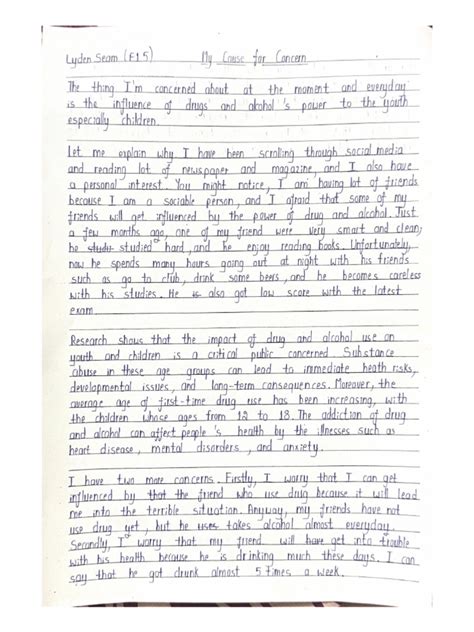 Lyden Seam (E15) My Cause for Concern
The thing I'm concerned about at the moment and everyday
is the influence of drugs and akohol's power to the youth
especially children.
Let me explain why I have been scrolling through social media
and reading lot of newspaper and magazine, and I also have
a personal interest. You might notice, I am having lot of friends
because I am a sociable person, and I afraid that some of my
friends will get influenced by the power of drug and alcohol. Just
a few months ago, one of my friend were very smart and clean;
he studied hard, and he enjoy reading books. Unfortunately,
now he spends many hours going out at night with his friends
such as go to club, drink some beers, and he becomes careless
with his studies. He is also got low score with the latest
exam.
Research shows that the impact of drug and alcohol use on
youth and children is a critical public concerned. Substance
abuse in these age groups can lead to immediate heath risks,
developmental issues, and long-term consequences. Moreover, the
average age of first-time drug use has been increasing, with
the children whose ages from 12 to 18. The addiction of drug
and alcohol can affect people's health by the illnesses such as
heart disease, mental disorders, and anxiety.
I have two more concerns. Firstly, I worry that I can get
influenced by that the friend who use drug because it will lead
me into the terrible situation. Anyway, my friends have not
use drug yet, but he uses takes alcohol almost everyday.
Secondly, I worry that my friend will have get into trouble
with his health because he is drinking much these days. I can
say that he got drunk almost 5 times a week.